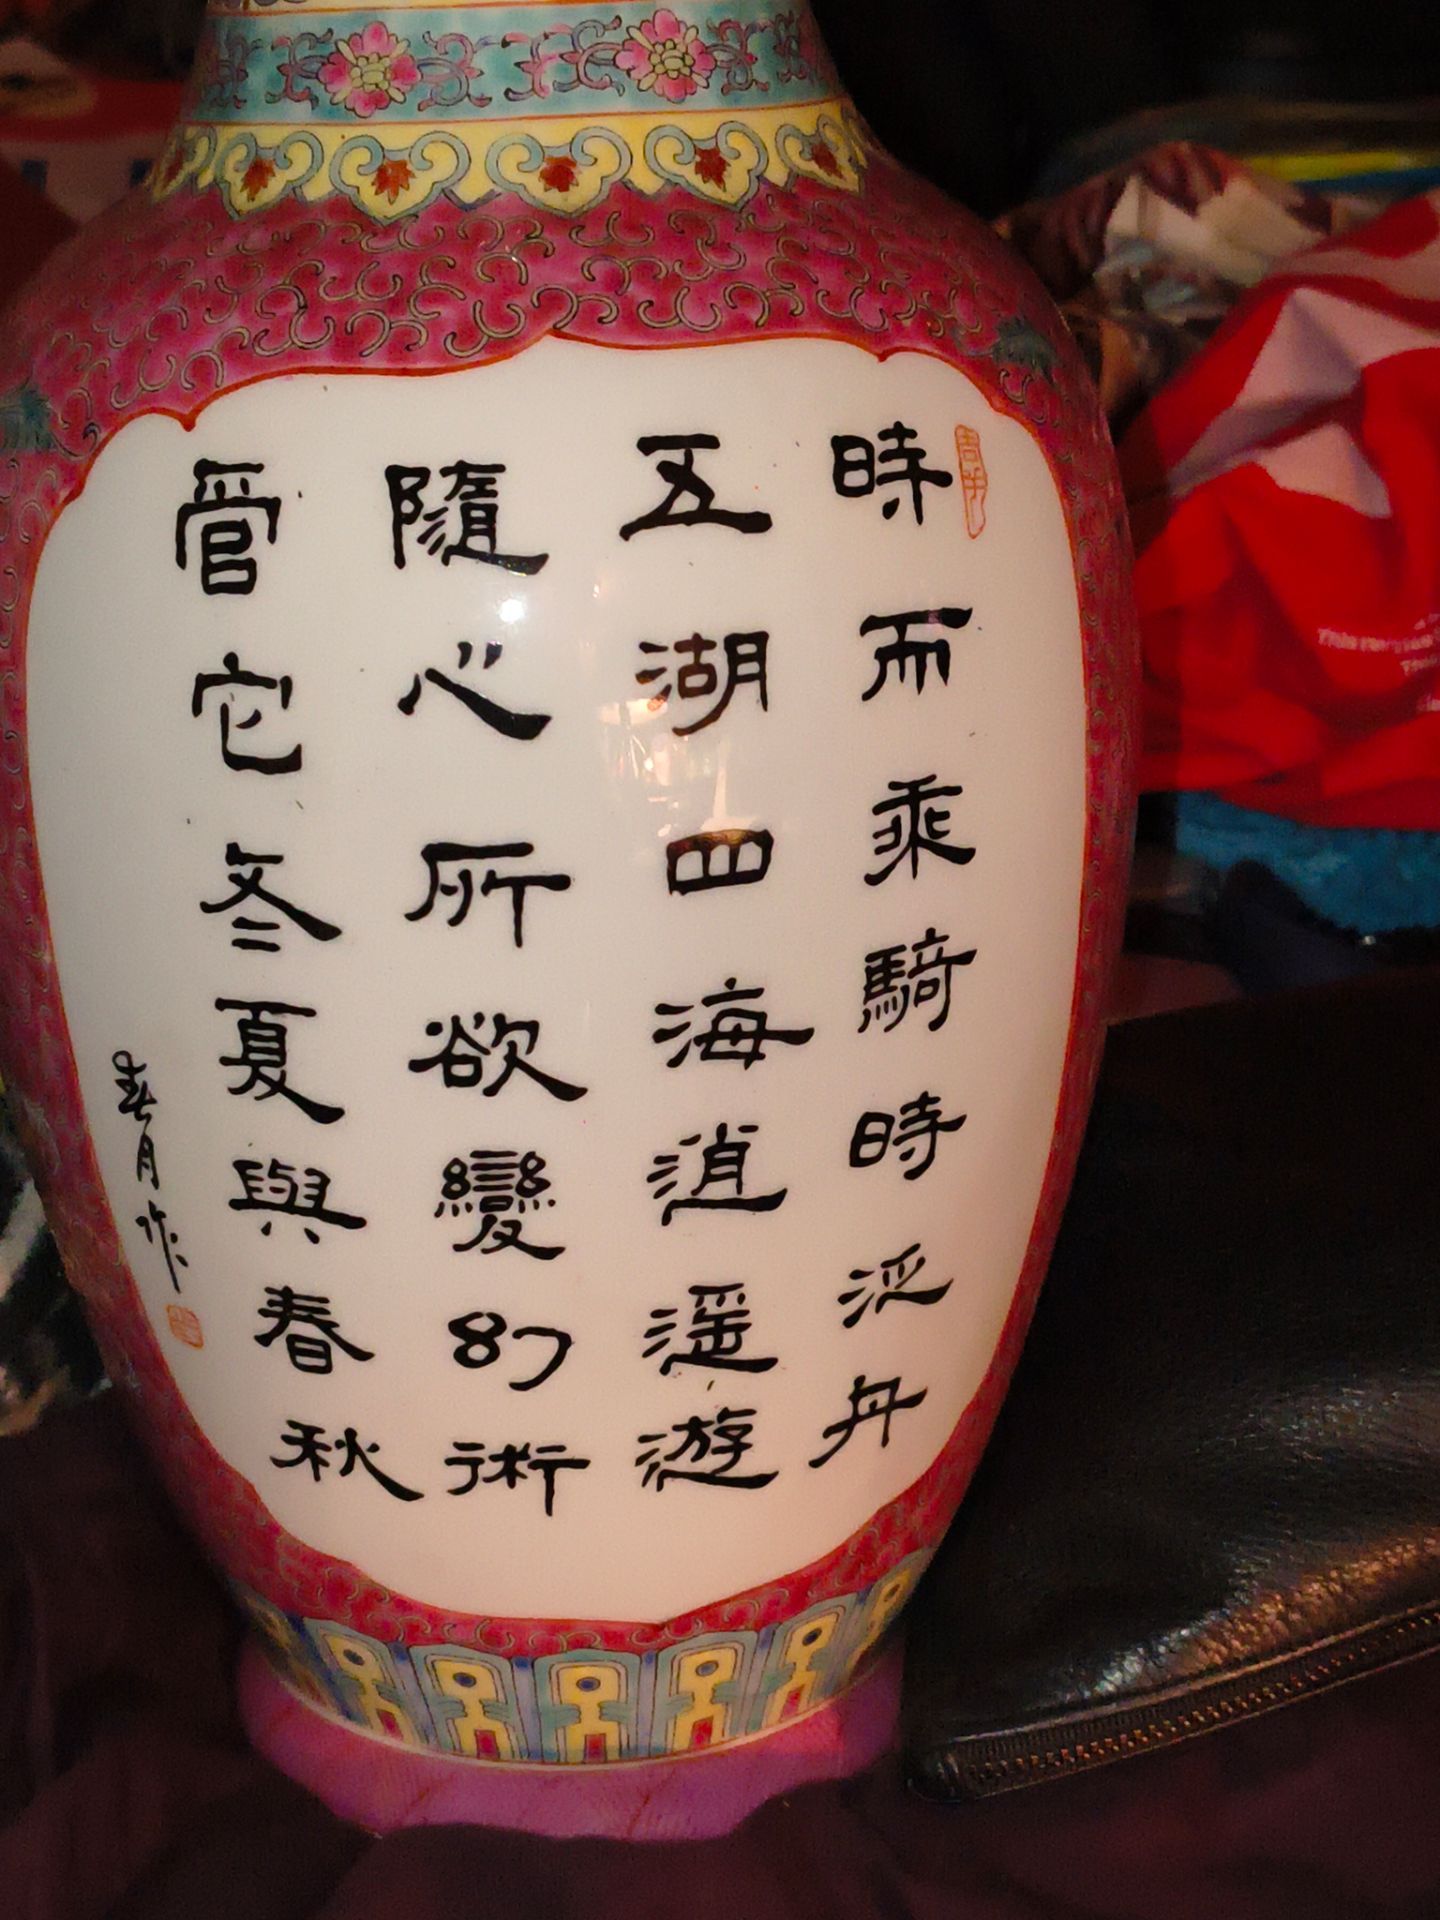 時而乘騎時泛舟
五湖四海逍遥遊
隨心所欲變幻術
管它冬夏與春秋
春月作